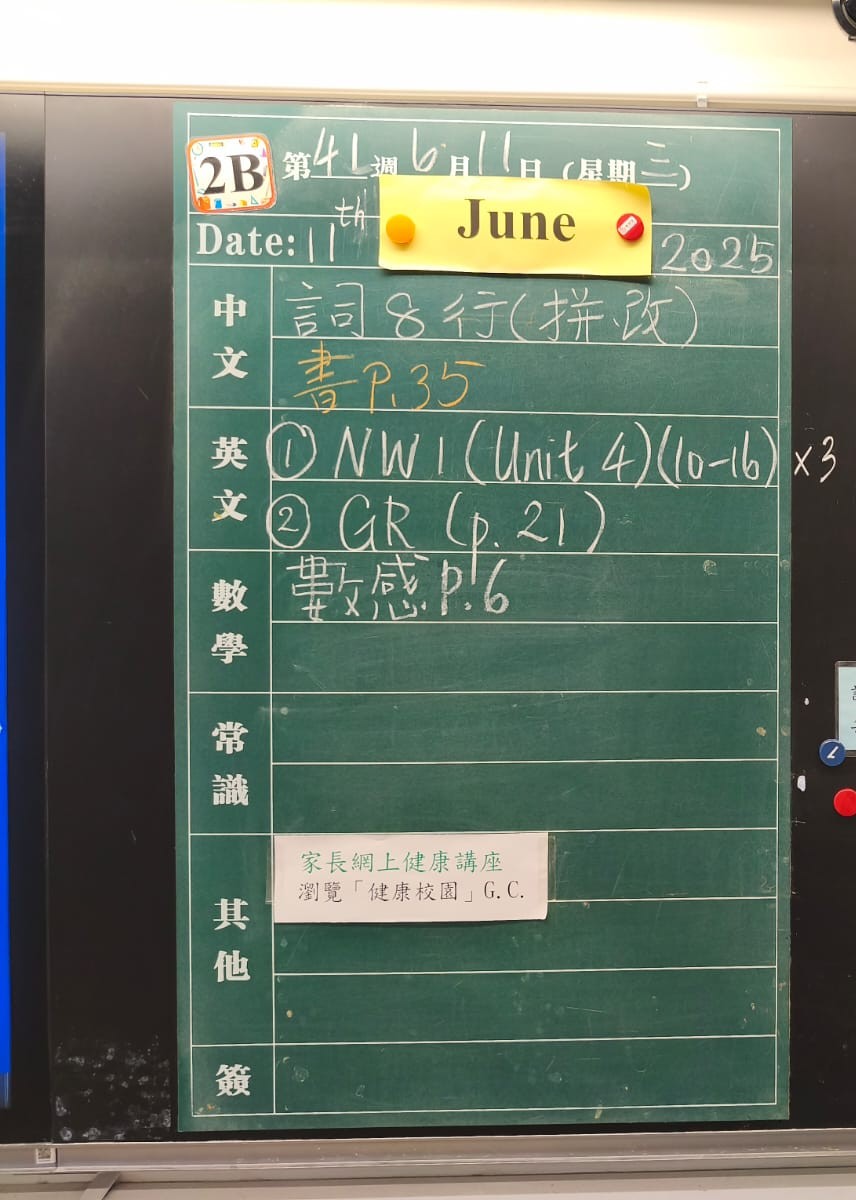 2B 第41週6月11日(星期三)
Date: 11th June 2025
中文 詞8行(拼、改)
書P.35
英文 ① NW1(Unit 4)(10-16)×3
② GR (p.21)
數學 數感P.6
常識
其他 家長網上健康講座
瀏覽「健康校園」G.C.
簽